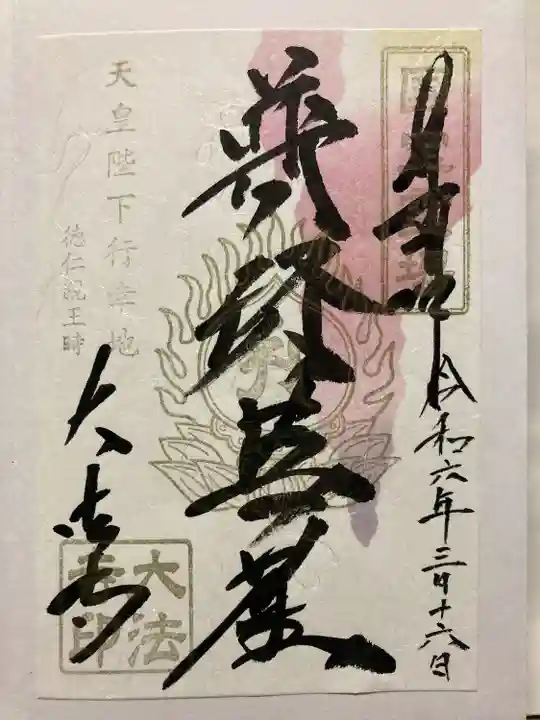 奉拝
令和六年三月十六日
普賢菩薩
天皇陛下行幸地
徳仁親王時
大法寺
大法寺印